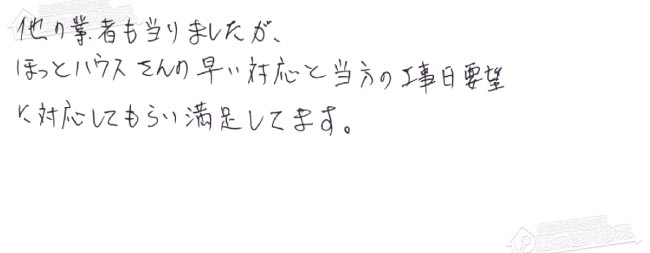 他の業者も当りましたが、
ほっとハウスさんの早い対応と当方の工事日要望
に対応してもらい満足してます。
ほっとハウス